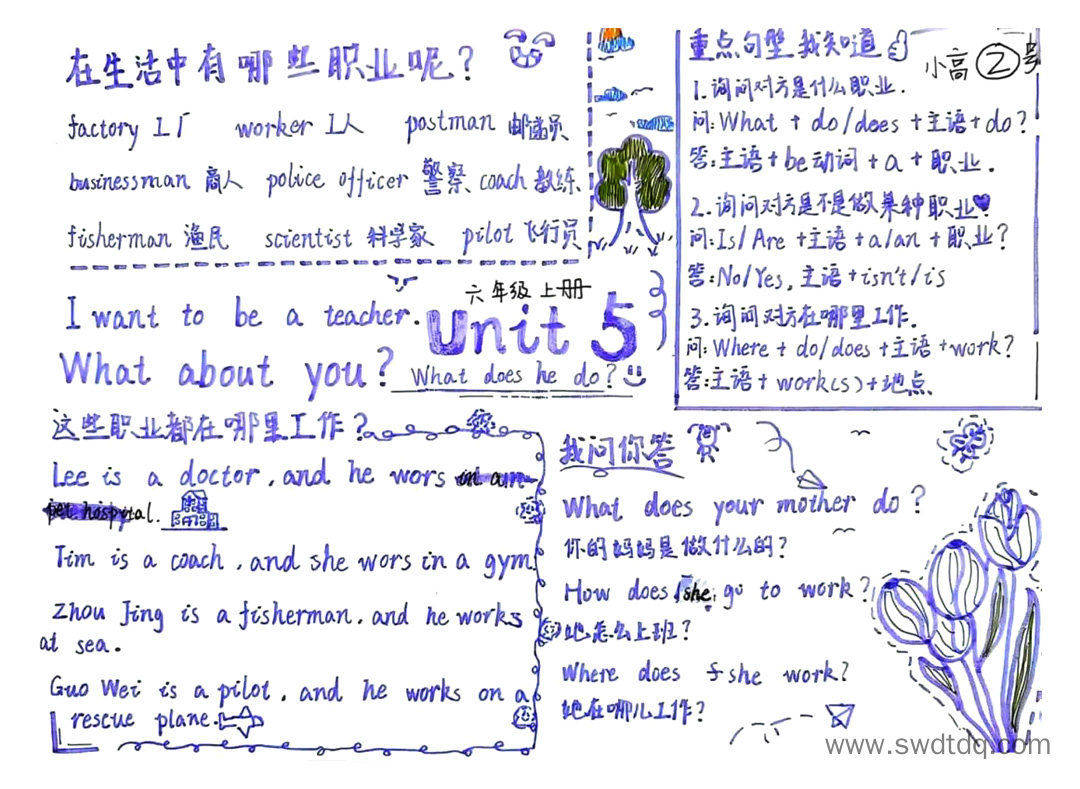 在生活中有哪些职业呢？
factory 工厂 worker 工人 postman 邮递员
businessman 商人 police officer 警察、coach 教练、
fisherman 渔民 scientist 科学家 pilot 飞行员
重点句型我知道
小高②号
1.询问对方是什么职业.
问:What + do/does +主语+do?
答:主语+be动词+a+职业.
2.询问对方是不是做某种职业
问:Is/Are +主语+a/an+职业?
答:No/Yes,主语+isn't/is
3.询问对方在哪里工作.
问:Where+do/does+主语+work?
答:主语+work(s)+地点.
六年级上册
I want to be a teacher.
Unit 5
What about you?
What does he do?
这些职业都在哪里工作?
Lee is a doctor, and he wors in a
pet hospital.
Tim is a coach, and she wors in a gym.
Zhou Jing is a fisherman, and he works
at sea.
Guo Wei is a pilot, and he works on a
rescue plane.
我问你答
What does your mother do?
你的妈妈是做什么的?
How does she go to work?
她怎么上班?
Where does she work?
她在哪儿工作?
www.swdtdq.com